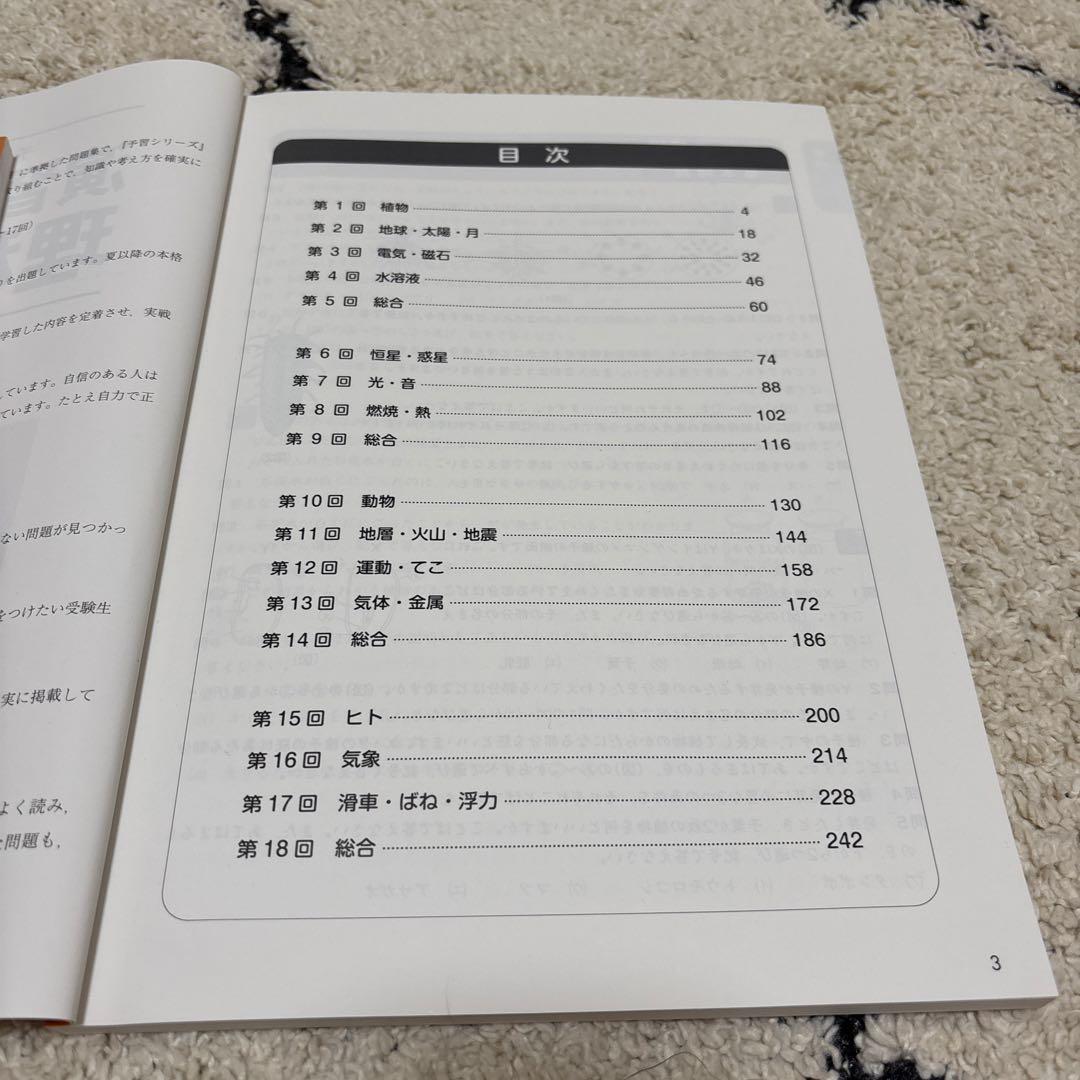 に準拠した問題集で,『予習シリーズ』
り組むことで, 知識や考え方を確実に
~17回)
を出題しています。夏以降の本格
学習した内容を定着させ, 実戦
しています。自信のある人は
ています。たとえ自力で正
ない問題が見つかっ
をつけたい受験生
実に掲載して
よく読み,
な問題も,
目 次
第 1 回 植物 4
第 2 回 地球・太陽・月 18
第 3 回 電気・磁石 32
第 4 回 水溶液 46
第 5 回 総合 60
第 6 回 恒星・惑星 74
第 7 回 光・音 88
第 8 回 燃焼・熱 102
第 9 回 総合 116
第 10 回 動物 130
第 11 回 地層・火山・地震 144
第 12 回 運動・てこ 158
第 13 回 気体・金属 172
第 14 回 総合 186
第 15 回 ヒト 200
第 16 回 気象 214
第 17 回 滑車・ばね・浮力 228
第 18 回 総合 242
3